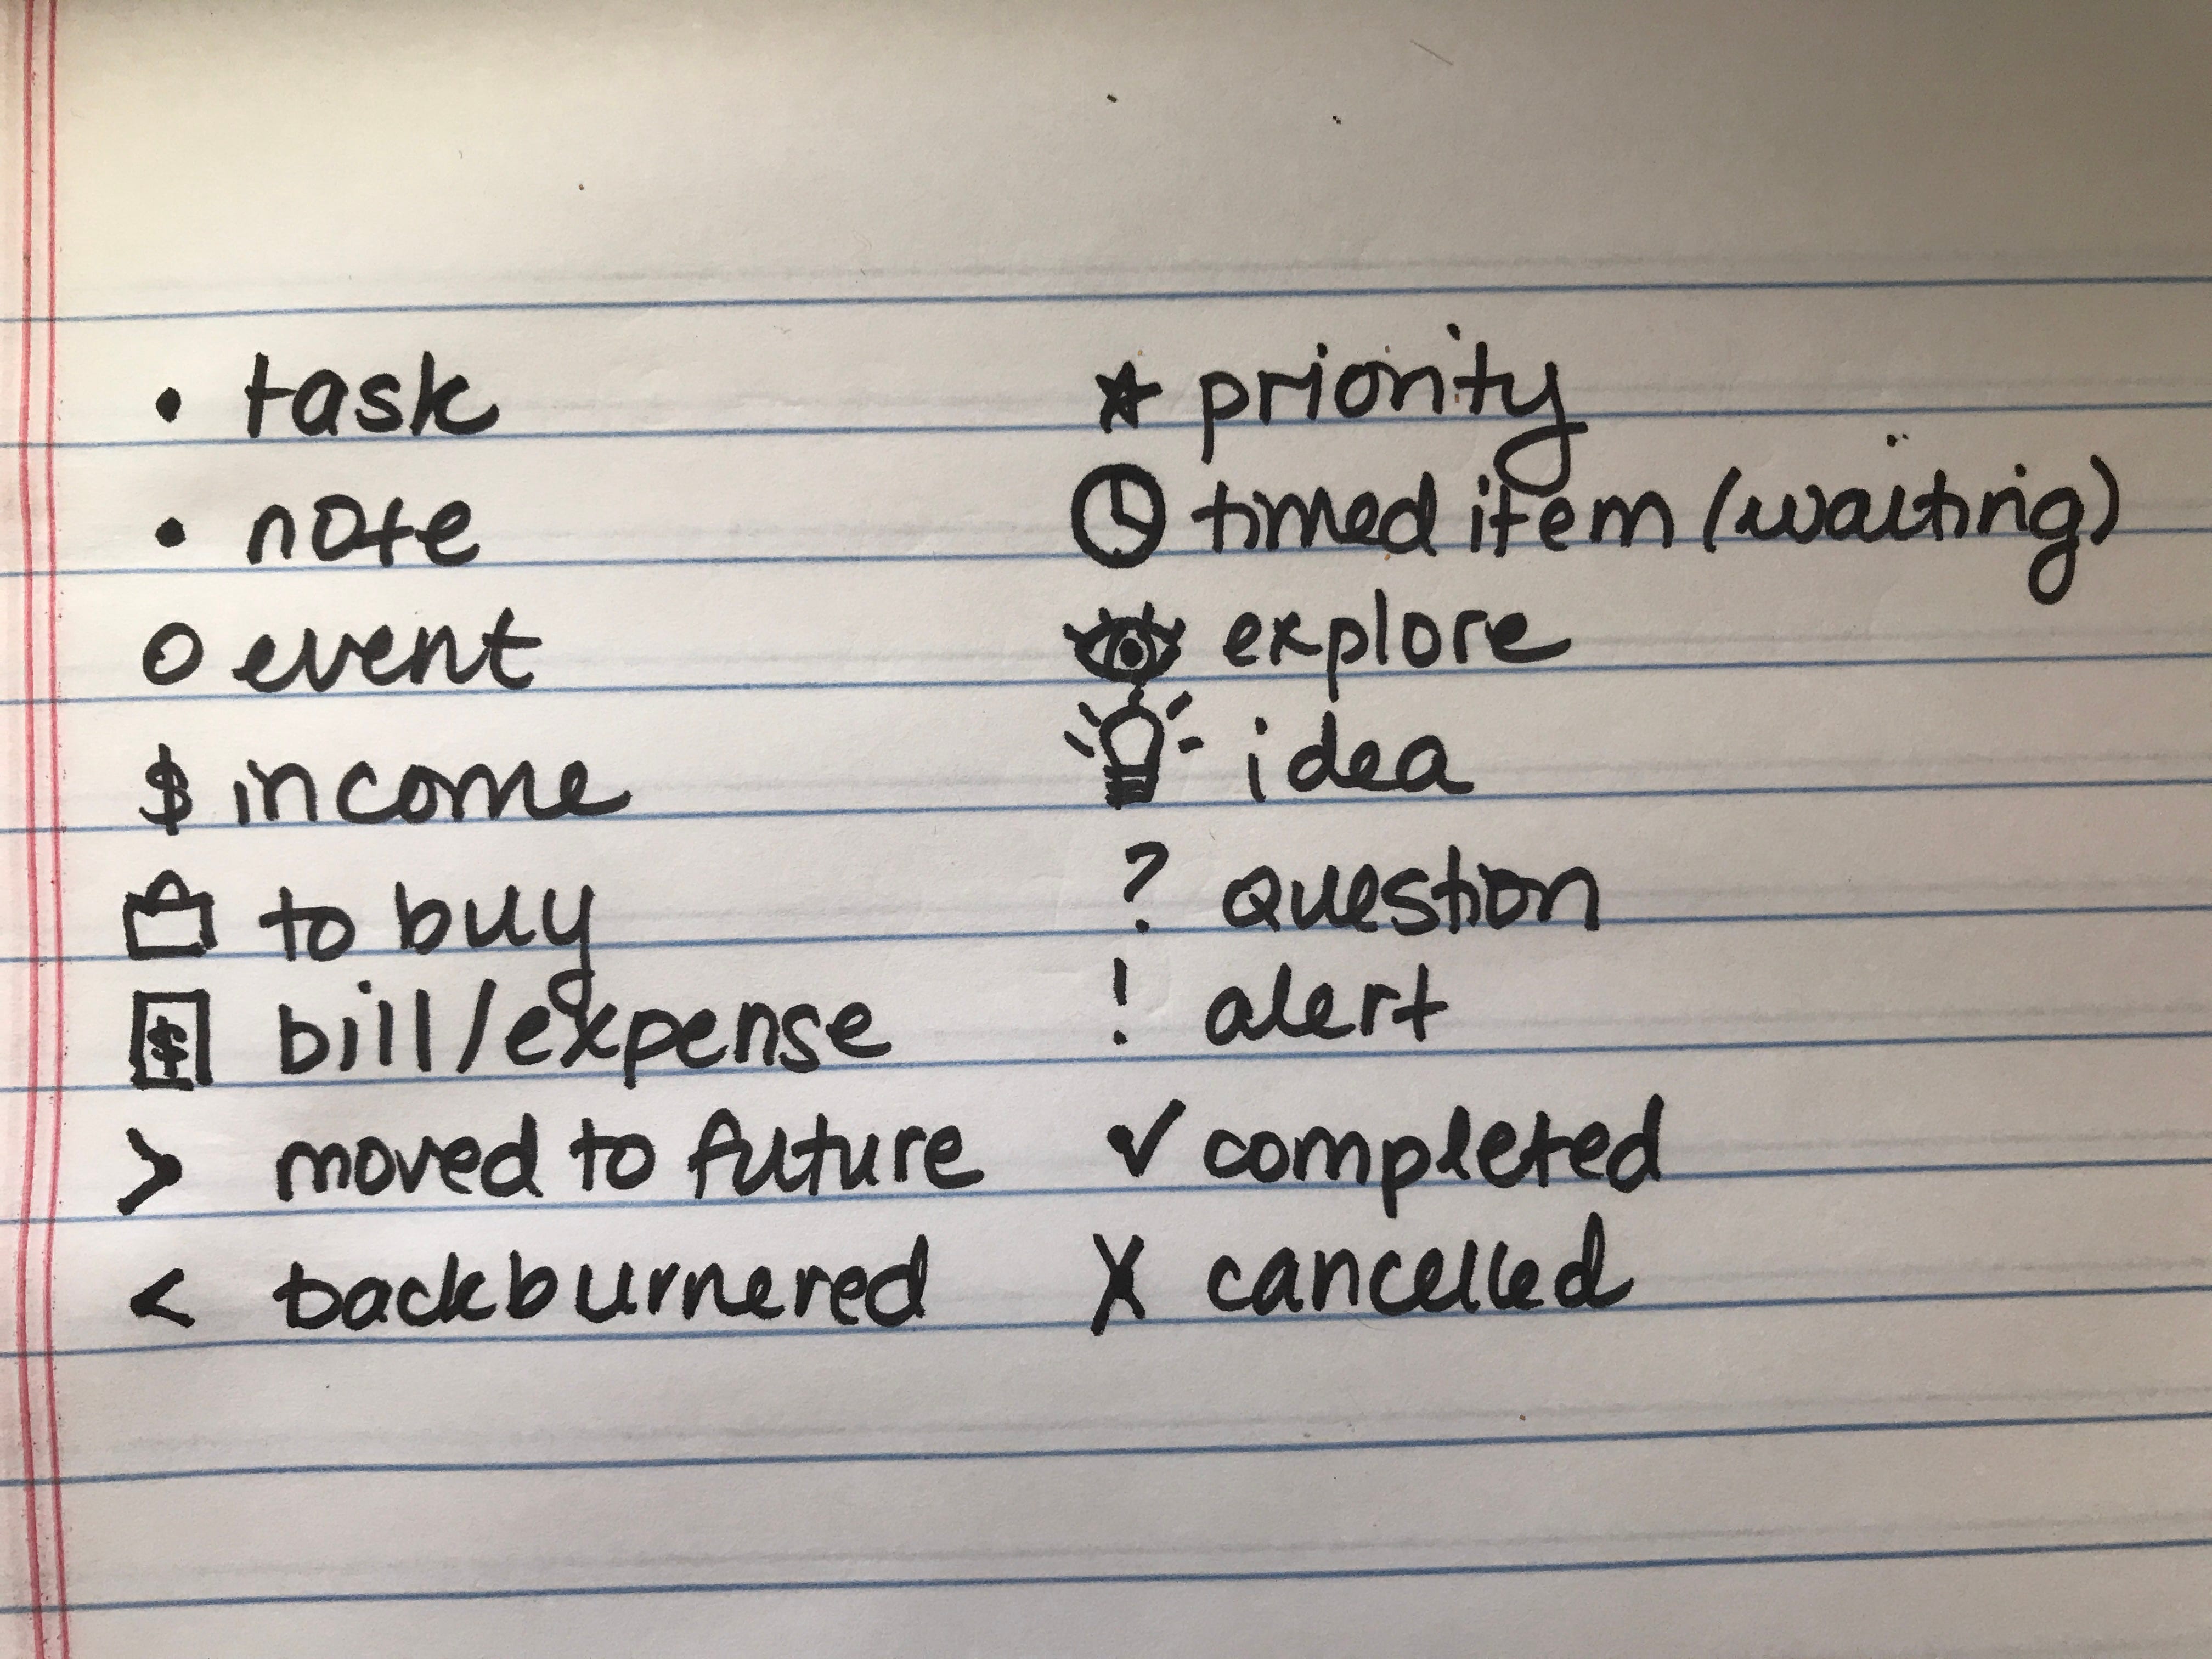 • task
• note
o event
$ income
to buy
$ bill/expense
> moved to future
< backburnered
★ priority
timed item (waiting)
explore
idea
? question
! alert
✓ completed
X cancelled